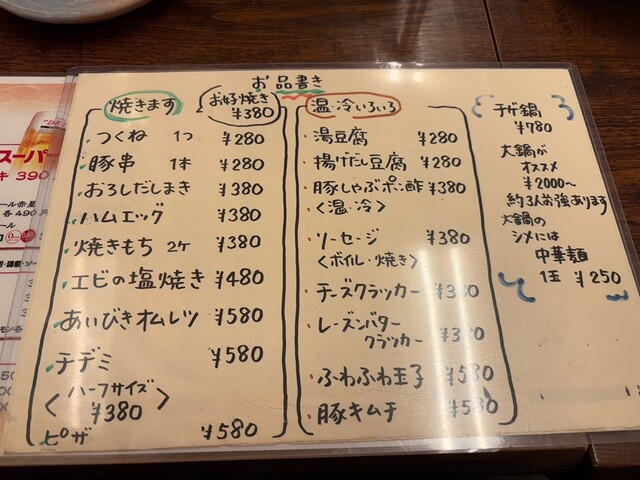 お品書き
焼きます
お好焼き
¥380
つくね 1つ ¥280
豚串 1本 ¥280
おろしだしまき ¥380
ハムエッグ ¥380
焼きもち 2ケ ¥380
エビの塩焼き ¥480
あいびきオムレツ ¥580
チヂミ ¥580
〈ハーフサイズ〉
¥380
ピザ ¥580
温・冷いろいろ
湯豆腐 ¥280
揚げだし豆腐 ¥280
豚しゃぶポン酢 ¥380
〈温・冷〉
ソーセージ ¥380
〈ボイル・焼き〉
チーズクラッカー ¥380
レーズンバター
クラッカー ¥380
ふわふわ玉子 ¥580
豚キムチ ¥580
チゲ鍋
¥780
大鍋が
オススメ
¥2000~
約3人前強あります
大鍋の
シメには
中華麺
1玉 ¥250
スーパー
キ 390
ール赤星
各490円
ール